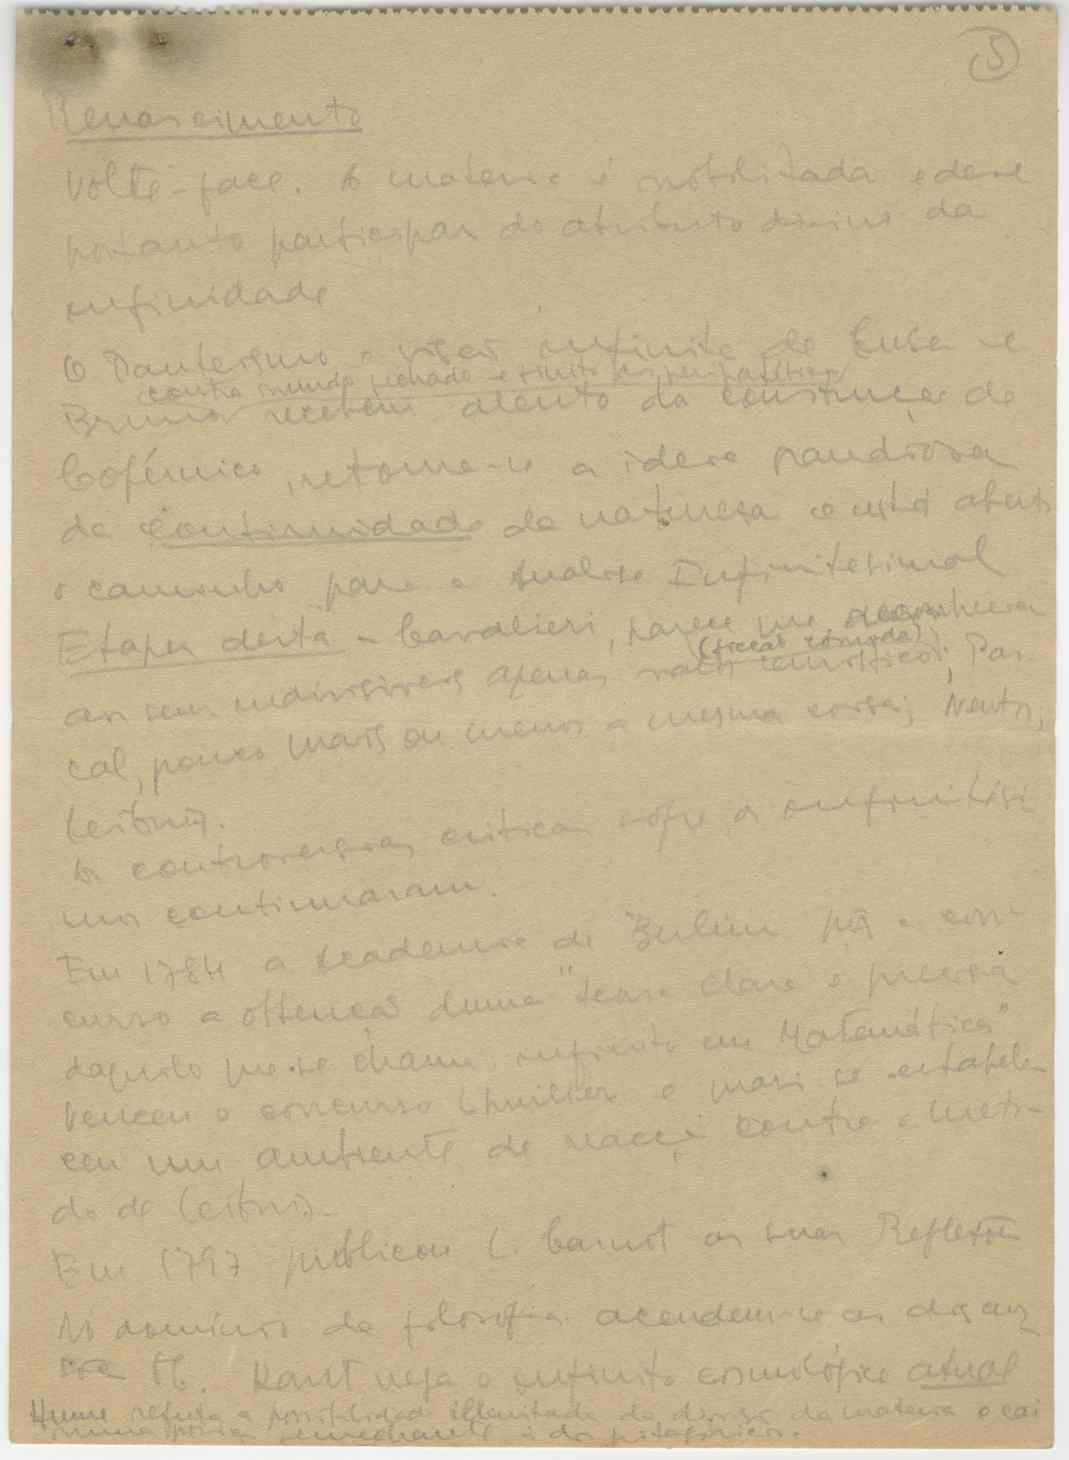 5
Renascimento
Volte-face. A materia é nobilitada e deve
portanto participar do atributo divino da
infinidade
O Panteismo e visão infinita de Cusa e
contra mundo fechado e finito dos peripatéticos
Bruno recebem alento da construção de
Copérnico, retoma-se a ideia grandiosa
da continuidade da natureza e está aberto
o caminho para a Analise Infinitesimal
Etapas desta – Cavalieri, parece que
(ficção cómoda)
os seus indivisiveis apenas ; Pas-
cal, pouco mais ou menos a mesma coisa; Newton;
Leibniz.
As controversias criticas sobre os infinitési-
mos continuaram.
Em 1784 a Academia de Berlim pôs a con-
curso a obtenção duma "teoria clara e precisa
daquilo que se chama infinito em Matemática"
Venceu o concurso Lhuilier e mais se estabele-
ceu um ambiente de reacção contra o méto-
do de Leibniz.
Em 1797 publicou L. Carnot as suas Reflexões
No dominio da filosofia acendem-se as discus
sões tb. Kant nega o infinito cosmológico atual
Hume refuta a possibilidade illimitada da divisão da materia e cai
numa posição semelhante à dos pitagóricos.